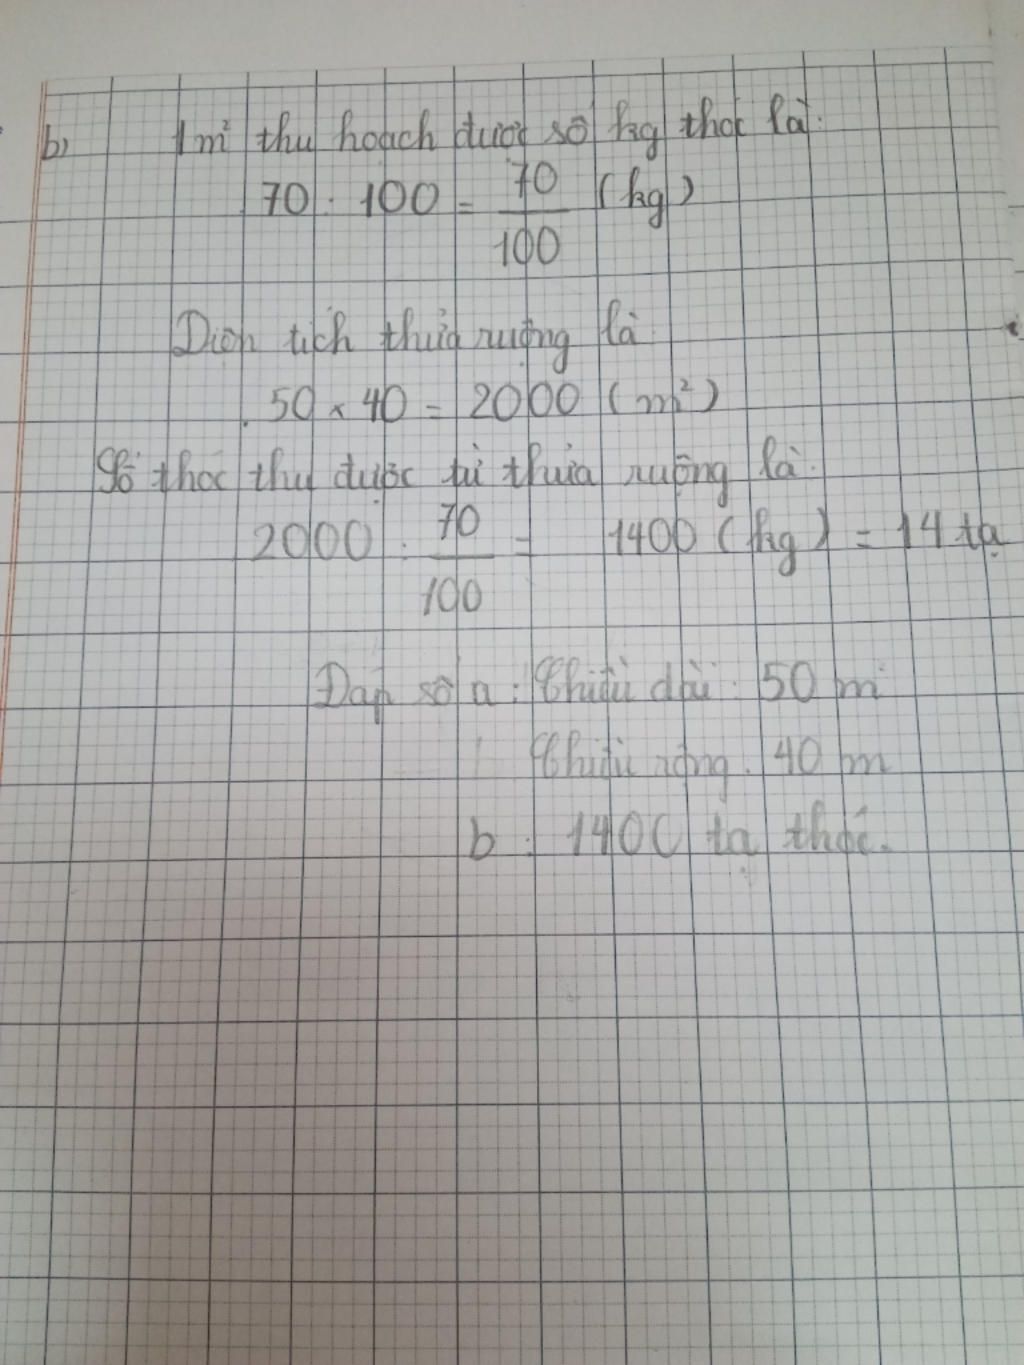 b) 1m² thu hoạch được số kg thóc là:
70 : 100 = 70/100 (kg)
Diện tích thửa ruộng là
50 x 40 = 2000 (m²)
Số thóc thu được từ thửa ruộng là:
2000 : 70/100 = 1400 (kg) = 14 tạ
Đáp số a : Chiều dài : 50 m
Chiều rộng : 40 m
b : 1400 tạ thóc.